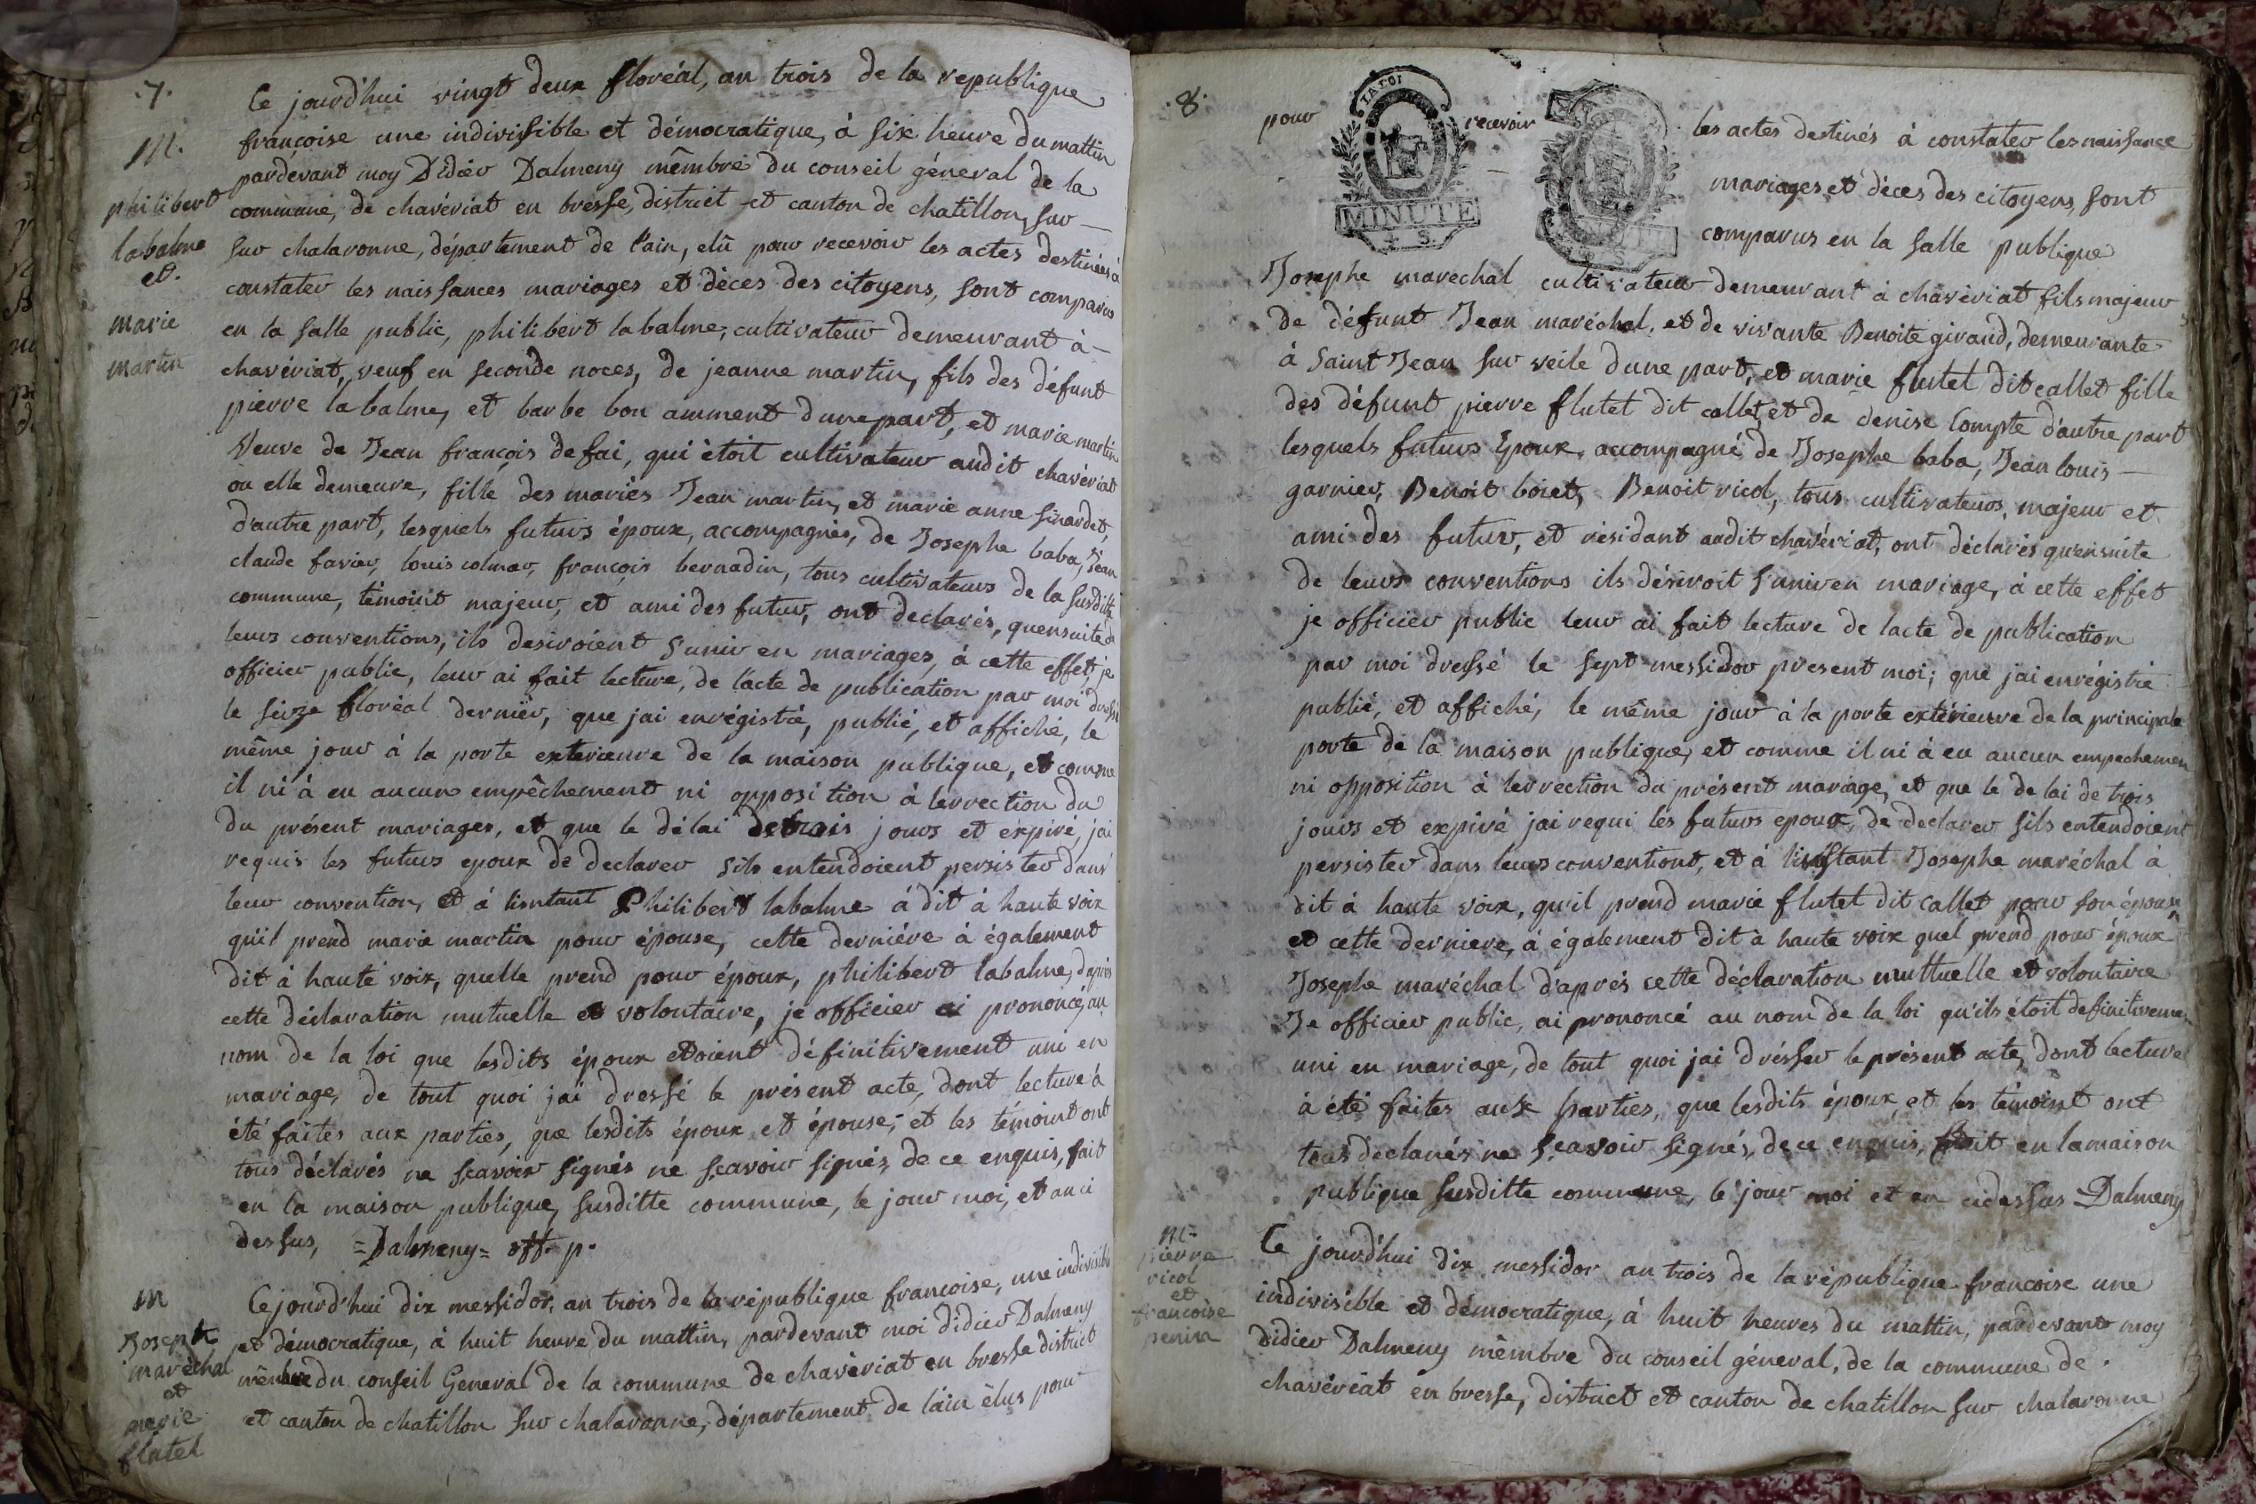 .7.
Ce jourd'hui vingt deux floréal, an trois de la republique
françoise une indivisible et démocratique, à six heure du mattin
pardevant moy Didier Dalmeny mêmbre du conseil géneral de la
commune, de chavériat en bresse, district et canton de chatillon, sur —
sur chalaronne, département de l'ain, elû pour recevoir les actes destinées à
constater les naissances mariages et déces des citoyens, sont comparus
en la salle public, philibert labalme, cultivateur demeurant à —
chavériat, veuf en seconde noces, de jeanne martin, fils des défunt
pierre labalme, et barbe bon amment dune part, et marie martin
Veuve de Jean françois defai, qui étoit cultivateur audit chavériat
ou elle demeure, fille des mariés Jean martin, et marie anne
d'autre part, lesquels futurs époux, accompagnés, de Josephe baba, Jean
claude favier, louis colmar, françois bernadin, tous cultivateurs de la susditte
commune, témoint majeur, et ami des futur, ont declarés, quensuite de
leurs conventions, ils desiroient s'unir en mariages, à cette effet, je
officier public, leur ai fait lecture, de l'acte de publication par moi dressé
le seize floréal dernier, que jai enrégistré, publié, et affiché, le
même jour à la porte exterieure de la maison publique, et comme
il ni à eu aucun empêchement ni opposition à lerrection du
du présent mariages, et que le délai de trois jours et expiré, jai
requis les futurs epoux de declarer sils entendoient persister dans
leur convention, et à lintant Philibert labalme à dit à haute voix
qu'il prend marie martin pour épouse, cette derniére à également
dit à haute voix, quelle prend pour époux, philibert labalme, d'aprés
cette déclaration mutuelle et volontaire, je officier ai prononcé, au
nom de la loi que lesdits époux etoient définitivement uni en
mariage, de tout quoi jai dressé le présent acte, dont lecture à
été faites aux parties, que lesdits époux et épouse, et les témoint ont
tous déclarés ne sçavoir signés ne sçavoir signés, de ce enquis, fait
en la maison publique, susditte commune, le jour moi, et an ci
dessus, = Dalmeny = off. p.
M.
philibert
labalme
et.
marie
martin
Ce jourd'hui dix messidor, an trois de la république francoise, une indivisible
et démocratique, à huit heure du mattin, pardevant moi didier Dalmeny
mêmbre du conseil General de la commune de chavériat en bresse district
et canton de chatillon sur chalaronne, département de l'ain élus pour
M
Joseph
maréchal
et
marie
flutel
.8.
pour
LA LOI
MINUTE
4 S.
recevoir
les actes destinés à constater les naissance
mariages et déces des citoyens, sont
comparus en la salle publique
Josephe marechal cultivateur demeurant à chavériat fils majeur
de défunt Jean maréchal, et de vivante Benoite giraud, demeurante
à Saint Jean sur veile dune part, et marie flutet dit callet fille
des défunt pierre flutet dit callet, et de denise Compte d'autre part
lesquels futurs Epoux, accompagné de Josephe baba, Jean louis —
garnier, Benoit boiet, Benoit ricol, tous cultivateurs, majeur et
ami des futur, et résidant audit chavériat, ont déclarés quensuite
de leurs conventions ils désiroit s'unir en mariage, à cette effet
je officier public leur ai fait lecture de lacte de publication
par moi dressé le sept messidor present moi; que jai enrégistré
publié, et affiché, le même jour à la porte extérieure de la principale
porte de la maison publique, et comme il ni à eu aucun empechemen
ni opposition à lerrection du présent mariage, et que le delai de trois
jours et expiré jai requi les futurs epoux, de declarer sils entendoient
persister dans leurs conventiont, et à linstant Josephe maréchal à
dit à haute voix, qu'il prend marie flutet dit callet pour son épouse
et cette derniere, à également dit à haute voix quel prend pour époux
Josephe maréchal d'aprés cette déclaration muttuelle et volontaire
Je officier public, ai prononcé au nom de la loi qu'ils étoit definitiveme
uni en mariage, de tout quoi jai drésser le présent acte, dont lecture
à été faites aux parties, que lesdits époux et les témoint ont
tous declarés ne sçavoir signés, de ce enquis, fait en la maison
publique susditte commune, le jour moi et an cidessus Dalmeny
M.
pierre
ricol
et
francoise
penin
Ce jourd'hui dix messidor an trois de la république francoise une
indivisible et démocratique, à huit heures du mattin, pardevant moy
didier Dalmeny mêmbre du conseil géneral, de la commune de
chavériat en bresse, district et canton de chatillon sur chalaronne